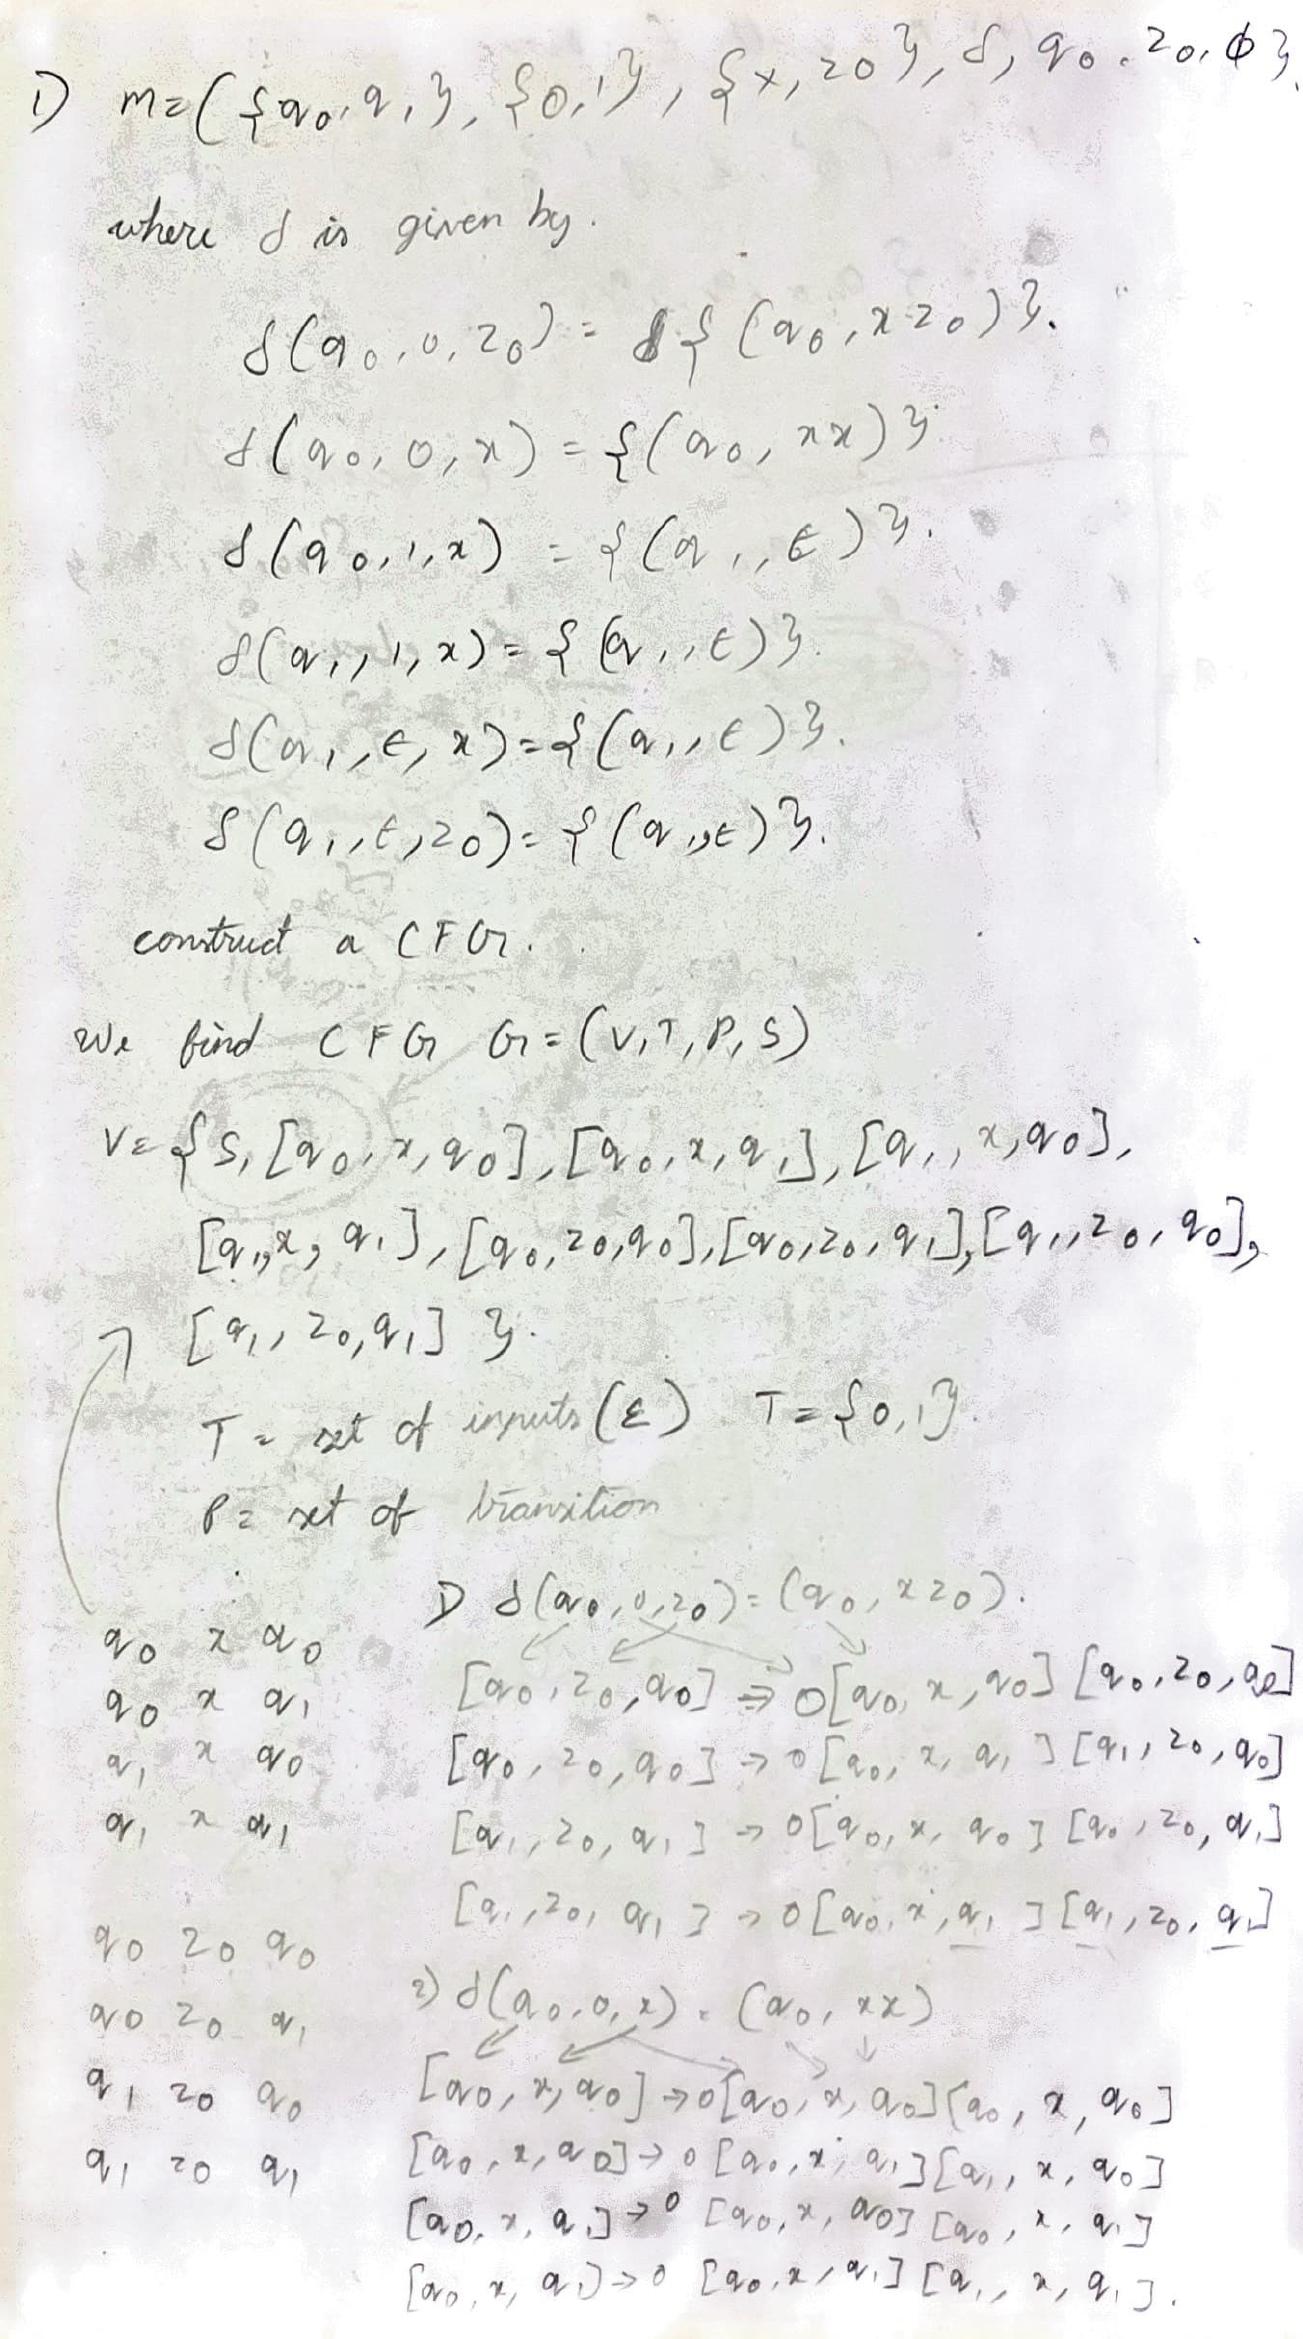 1) m=({q0,q1}, {0,1}, {x,z0}, δ, q0, z0, φ}.
where δ is given by.
δ(q0,0,z0) = {(q0,xz0)}.
δ(q0,0,x) = {(q0,xx)}.
δ(q0,1,x) = {(q1,ε)}.
δ(q1,1,x) = {(q1,ε)}.
δ(q1,ε,x) = {(q1,ε)}.
δ(q1,ε,z0) = {(q1,ε)}.
construct a CFG.
We find CFG G=(V,T,P,S)
V= {S, [q0,x,q0], [q0,x,q1], [q1,x,q0],
[q1,x,q1], [q0,z0,q0], [q0,z0,q1], [q1,z0,q0],
[q1,z0,q1] }.
T = set of inputs (Σ) T={0,1}.
P = set of transition
1) δ(q0,0,z0) = (q0,xz0).
q0 x q0
q0 x q1
q1 x q0
q1 x q1
q0 z0 q0
q0 z0 q1
q1 z0 q0
q1 z0 q1
[q0,z0,q0] ⇒ 0[q0,x,q0] [q0,z0,q0]
[q0,z0,q0] → 0[q0,x,q1] [q1,z0,q0]
[q1,z0,q1] → 0[q0,x,q0] [q0,z0,q1]
[q1,z0,q1] → 0[q0,x,q1] [q1,z0,q1]
2) δ(q0,0,x) = (q0,xx)
[q0,x,q0] → 0[q0,x,q0] [q0,x,q0]
[q0,x,q0] → 0 [q0,x,q1] [q1,x,q0]
[q0,x,q1] → 0 [q0,x,q0] [q0,x,q1]
[q0,x,q1] → 0 [q0,x,q1] [q1,x,q1].